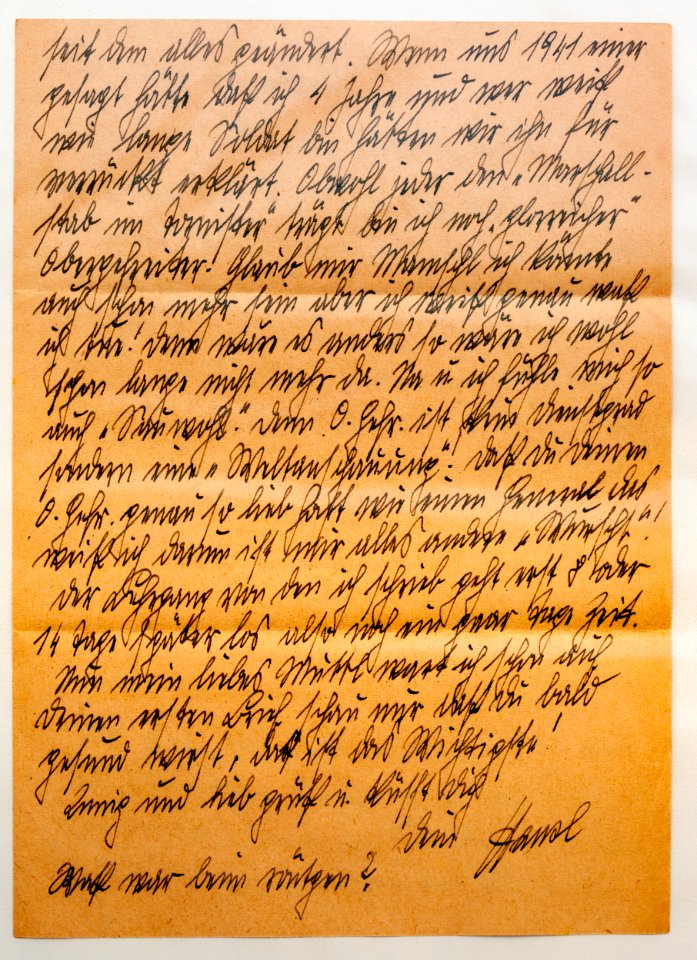 seit dem alles geändert. Wenn uns 1941 einer
gesagt hätte daß ich 4 Jahre und wer weiß
wie lange Soldat bin hätten wir ihn für
verrückt erklärt. Obwohl jeder den „Marschall-
stab im Tornister" trägt bin ich noch „glorreicher"
Obergefreiter! Glaub mir Mamschl ich könnte
auch schon mehr sein aber ich weiß genau waß
ich tue! denn wäre es anders so wäre ich wohl
schon lange nicht mehr da. Na u ich fühle mich so
auch „Sauwohl". denn O. Gefr. ist kein Dienstgrad
sondern eine „Weltanschauung". daß du deinen
O. Gefr. genau so lieb hast wie einen General das
weiß ich darum ist mir alles andere „Wurscht"!
der Lehrgang von den ich schrieb geht erst 8 oder
14 Tage später los also noch ein paar Tage Zeit.
Nun mein liebes Mutti wart ich schon auch
deinen ersten Brief schau nur daß du bald
gesund wirst, daß ist das Wichtigste!
Innig und lieb grüßt u. küsst dich
dein Hansl
Waß war beim röntgen?